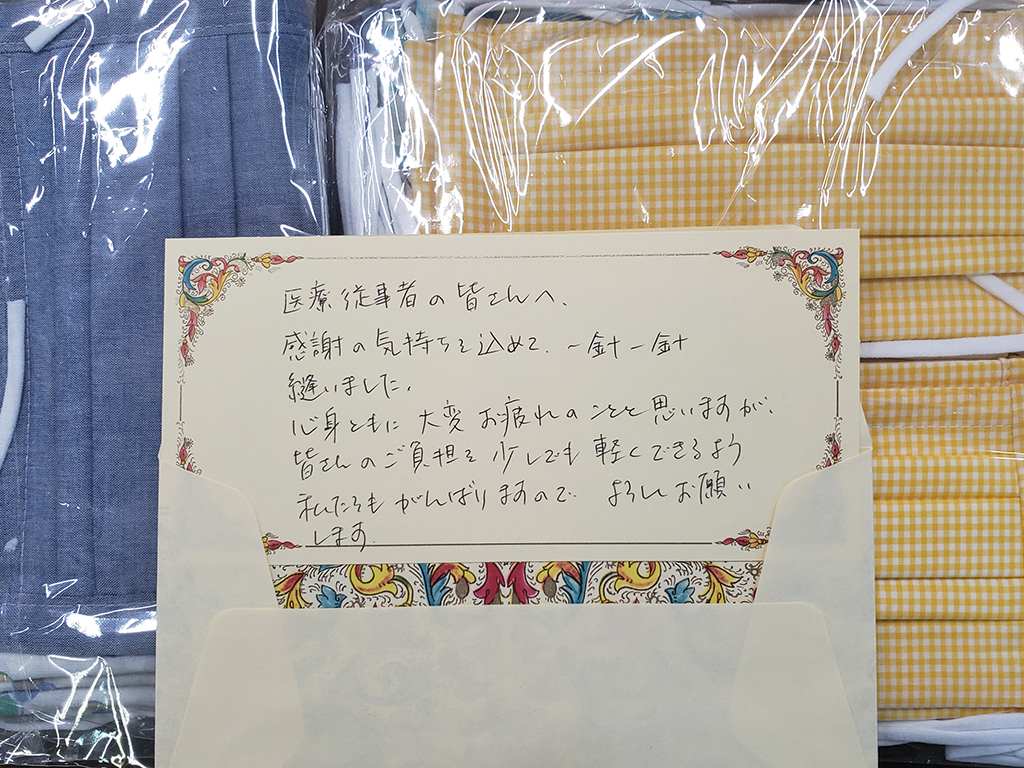 医療従事者の皆さんへ、
感謝の気持ちを込めて、一針一針
縫いました。
心身ともに大変お疲れのことと思いますが、
皆さんのご負担を少しでも軽くできるよう
私たちもがんばりますので よろしくお願い
します